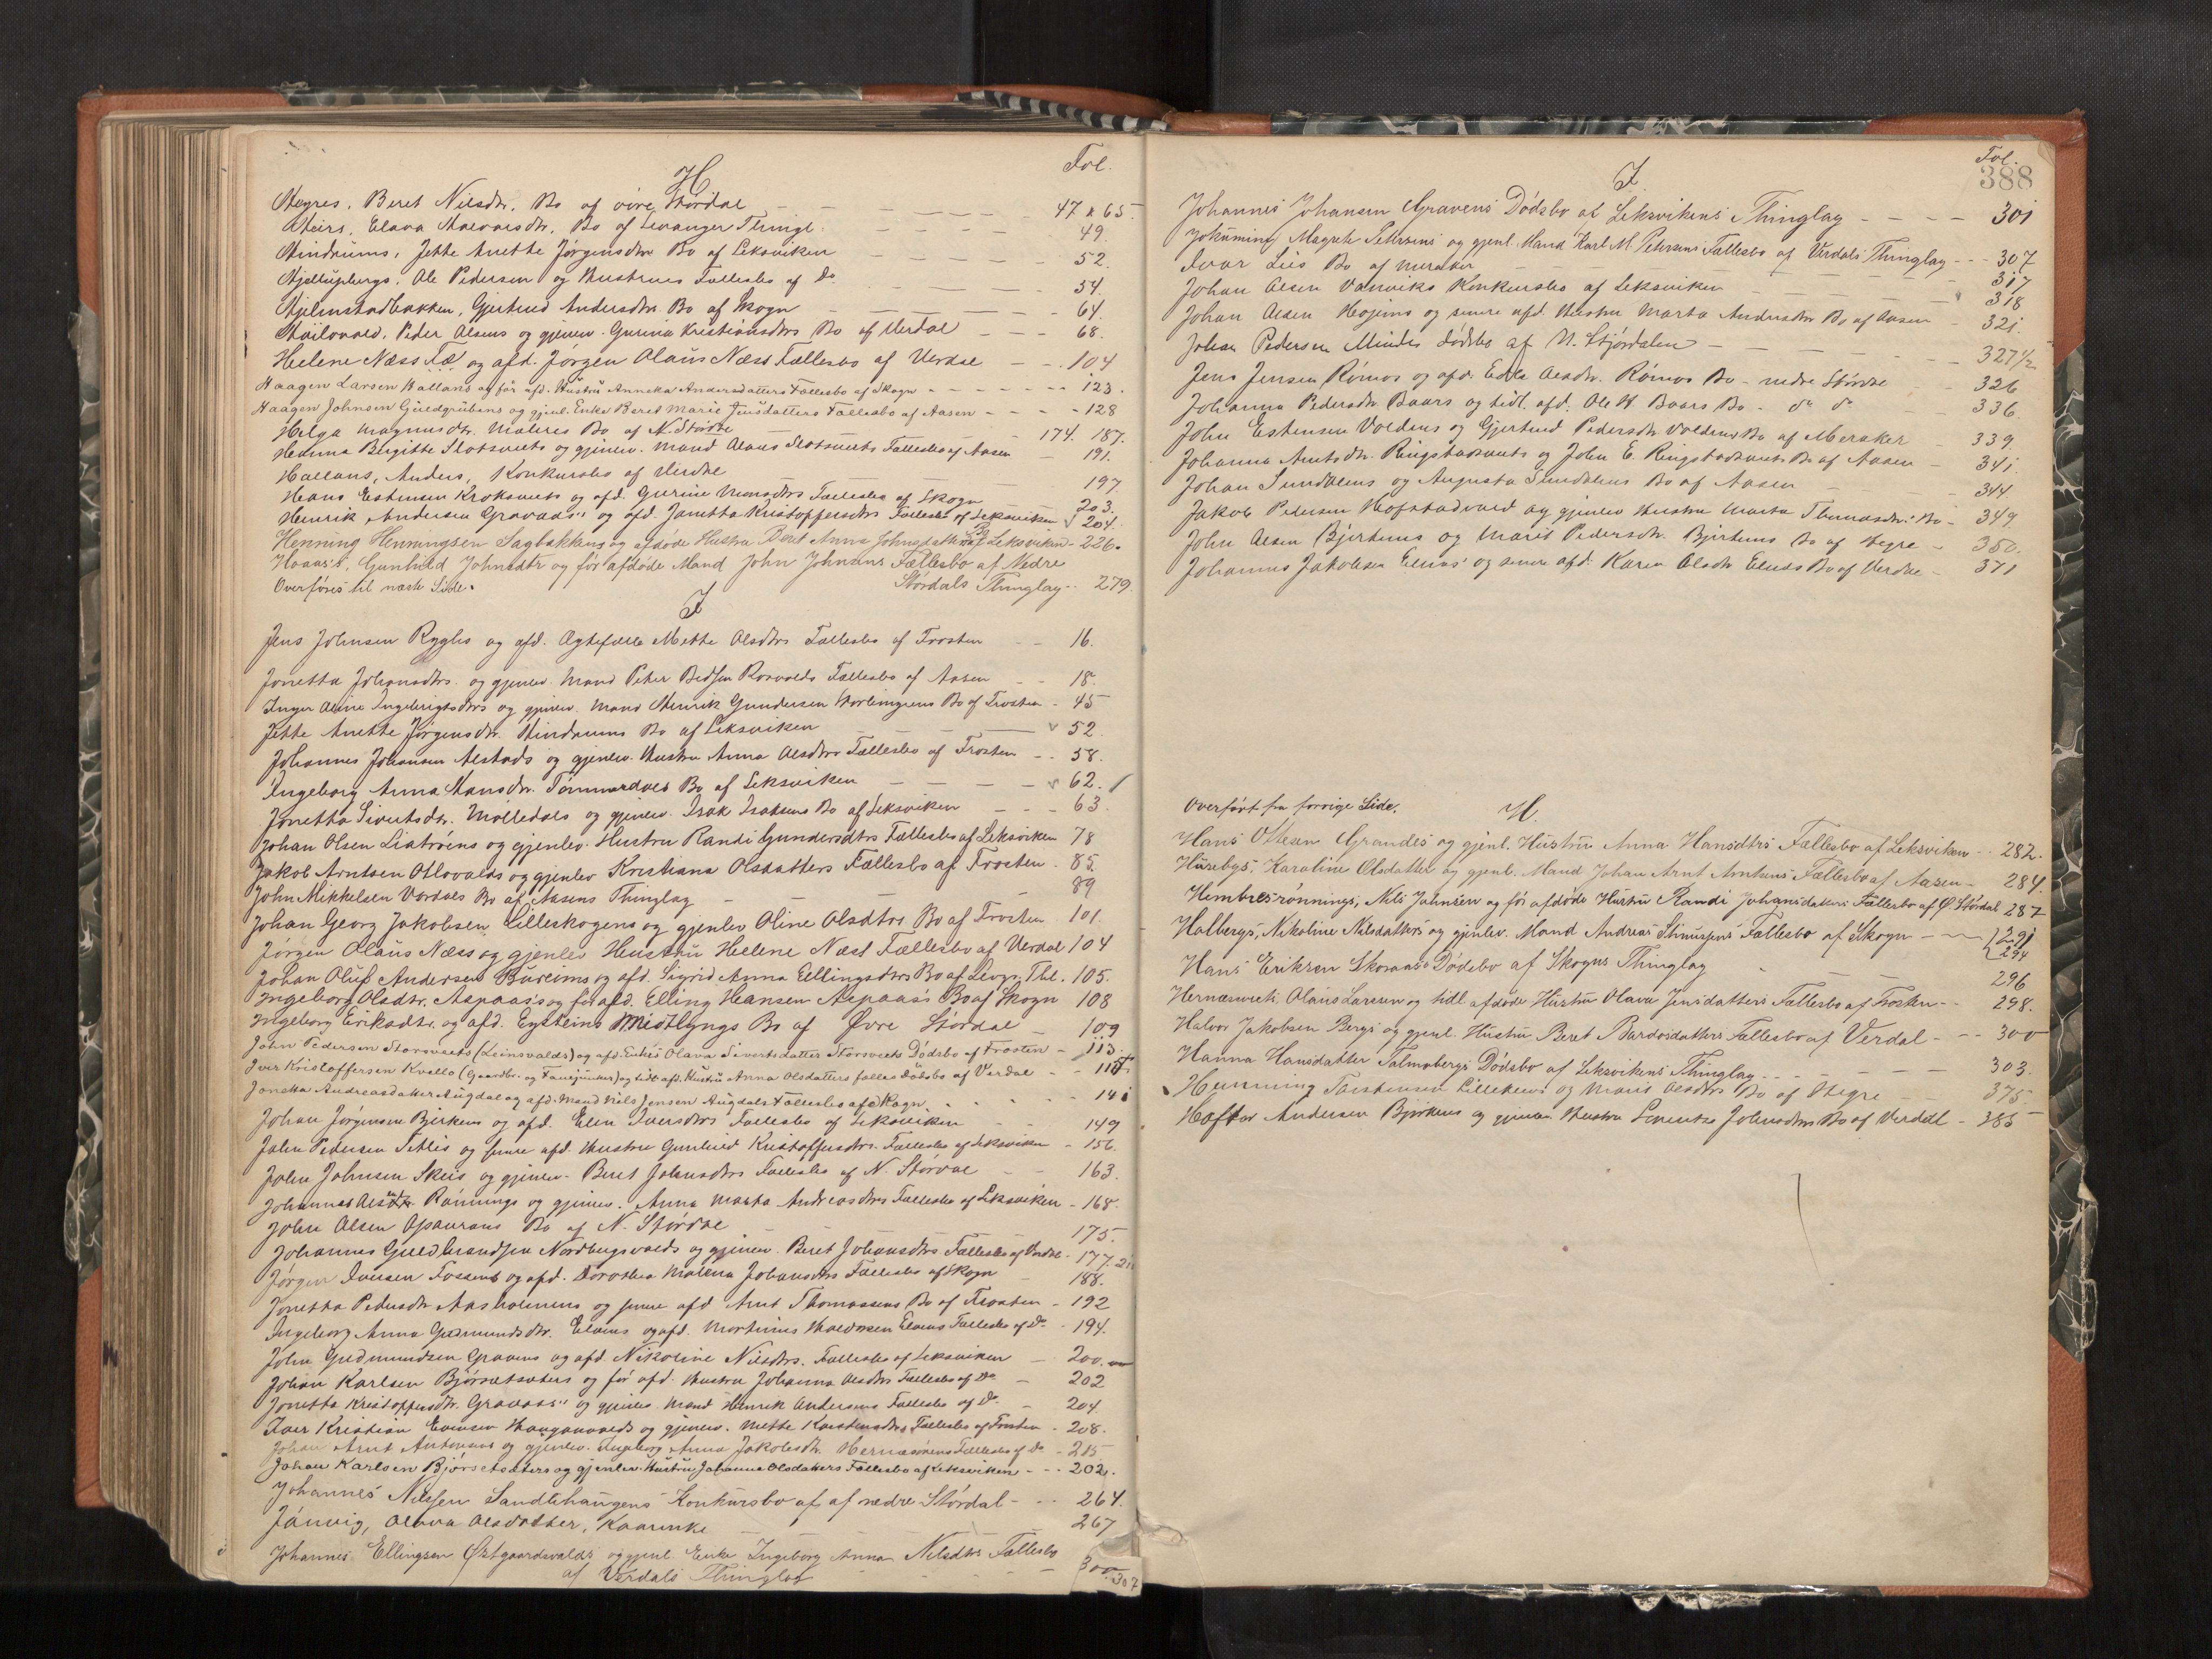 H
Fol.
Hegres, Beret Nilsdtr. Bo af övre Stördal 47 & 65.
Heirs, Elava Halvorsdtr. Bo af Levanger Thingl. 49.
Hindrums, Jette Anette Jörgensdtr Bo af Leksviken 52.
Ole Pedersen og Hustrues Fællesbo af Do 54.
Hjelmstadbakken, Gjertrud Andersdtr. Bo af Skogn 64.
Peder Olsens og gjenlev. Gurina Kristiansdtrs Bo af Verdal 68.
Helene Næss og afd. Jörgen Olaus Næss Fællesbo af Verdal 104
Haagen Larsen Ballans og för afd. Hustru Anneka Andersdatters Fællesbo af Skogn 123.
Haagen Johnsen Guldgrubens og gjenl. Enke Beret Marie Jensdatters Fællesbo af Aasen 128
Helga Magnusdtr. Maleres Bo af N. Stördal 174. 187.
Hanna Birgitte Slotsveets og gjenlev. Mand Olaus Slotsveets Fællesbo af Aasen 191.
Hallans, Anders, Konkursbo af Verdal 197.
Hans Estensen Kroksveets og afd. Gurine Monsdtrs Fællesbo af Skogn 203.
Henrik Andersen Gravaas's og afd. Janetta Kristoffersdtrs Fællesbo af Leksviken 204.
Henning Henningsen Sagbakkens og afdöde Hustru Beret Anna Johnsdatters Bo af Leksviken 226.
Haas's, Gunhild Johnsdtr og för afdöde Mand John Johnsens Fællesbo af Nedre
Stördals Thinglag 279.
Overföres til næste Side.
I
Jens Johnsen Rygghs og afd. Ægtefælle Mette Olsdtrs Fællesbo af Frosten 16.
Jonetta Johansdtrs. og gjenlev. Mand Peter Rosvolds Fællesbo af Aasen 18.
Inger Oline Ingebrigtsdtrs og gjenlev. Mand Henrik Gundersen Bo af Frosten 45
Jette Anette Jörgensdtr. Hindrums Bo af Leksviken 52.
Johannes Johansen Alstads og gjenlev. Hustru Anna Olsdtrs Fællesbo af Frosten 58.
Ingeborg Anna Hansdtr. Tömmerdals Bo af Leksviken 62.
Jonetta Sivertsdtr. Mölledals og gjenlev. Isak Isaksens Bo af Leksviken 63.
Johan Olsen Liatröens og gjenlev. Hustru Randi Gundersdtrs Fællesbo af Leksviken 78
Jakob Arntsen Otlovalds og gjenlev Kristiana Olsdatters Fællesbo af Frosten 85.
John Mikkelsen Vordals Bo af Aasens Thinglag 89
Johan Georg Jakobsen, Lilleskogens og gjenlev Oline Olsdtrs Bo af Frosten 101.
Jörgen Olaus Næss og gjenlev Hustru Helene Næss Fællesbo af Verdal 104
Johan Oluf Andersen Bureims og afd. Sigrid Anna Ellingsdtrs Bo af Levgr. Thl. 105.
Ingeborg Olsdtr. Aspaas's og för afd. Elling Hansen Aspaas's Bo af Skogn 108
Ingeborg Eriksdtr. og afd. Eysteins Midtlyngs Bo af Øvre Stördal 109
John Pedersen Storsveets (Leinsvalds) og afd. Enkes Olava Sivertsdatter Storsveets Dödsbo af Frosten 113.
Iver Kristoffersen Kvello (Gaardbr. og Fanejunker) og tidl. afd. Hustru Anna Olsdatters fælles Dödsbo af Verdal 118
Jonetta Andreasdatter Augdal og afd. Mand Nils Jensen Augdals Fællesbo af Skogn 141
Johan Jörgensen Bjerkens og afd. Elen Iversdtrs Fællesbo af Leksviken 149
John Pedersen Tetlis og senere afd. Hustru Gunhild Kristoffersdtrs. Fællesbo af Leksviken 156.
John Johnsen Skeis og gjenlev. Beret Johansdtrs Fællesbo af N. Stördal 163.
Johannes Olsen Rönnings og gjenlev. Anna Marta Andreasdtrs Fællesbo af Leksviken 168.
John Olsen Bo af N. Stördal 175.
Johannes Guldbrandsen Nordbergsvalds og gjenlev. Beret Johansdtrs Fællesbo af Verdal 177.
Jörgen Iversen Fossens og afd. Dorothea Malena Johansdtrs Fællesbo af Skogn 188.
Jonetta Pedersdtr. Aasholmens og senere afd Arnt Thomassens Bo af Frosten 192
Ingeborg Anna Gudmundsdtr. Elvens og afd. Mortinus Halvorsen Elvens Fællesbo af Do 194.
John Gudmundsen Gravens og afd. Nikoline Nilsdtrs. Fællesbo af Leksviken 200.
Johan Karlsen Björsetsæters og för afd. Hustru Johanna Olsdtrs Fællesbo af Do 202
Jonetta Kristoffersdtr. Gravaas's og gjenlev. Mand Henrik Andersens Fællesbo af Do 204.
Iver Kristian Evensen Hauganvalds og gjenlev. Mette Karstensdtrs Fællesbo af Frosten 208.
Johan Arnt Antonsens og gjenlev. Ingeborg Anna Jakobsdtr. Hernæsöiens Fællesbo af Do 215
Johan Karlsen Björsetsæters og gjenlev. Hustru Johanna Olsdatters Fællesbo af Leksviken 202.
Johannes Nilssen Sandtshaugens Konkursbo af af nedre Stördal 264.
Janvig, Olava Olsdatter, 267
Johannes Ellingsen Østgaardsvalds og gjenl. Enke Ingeborg Anna Nilsdtrs Fællesbo
af Verdals Thinglag 300. 307
I.
Fol.
388
Johannes Johansen Gravens Dödsbo af Leksvikens Thinglag 301
Magrete Petersens og gjenl. Mand Karl M. Petersens Fællesbo af Verdals Thinglag 307
Ivar Lies Bo af Meraker 317
Johan Olsen Vanvikes Konkursbo af Leksviken 318
Johan Olsen Hojems og senere afd. Hustru Marta Andersdtr Bo af Aasen 321.
Johan Pedersen Mindes Dödsbo af N. Stjördalen 327 1/2
Jens Jensen Römos og afd. Olsdtr. Römos Bo - nedre Stördal 326
Johanna Pedersdtr. Baars og tidl. afd. Ole H. Baars Bo - do do 336.
John Estensen Voldens og Gjertrud Pedersdtr Voldens Bo af Meraker 339.
Johanna Arntsdtr. Ringstadsveets og John E. Ringstadsveets Bo af Aasen 341.
Johan Sundalens og Augusta Sundalens Bo af Aasen 344
Jakob Pedersen Hofstadvald og gjenlev Hustru Marta Thomasdtrs Bo 349.
John Olsen Bjertems og Marit Pedersdtr. Bjertems Bo af Hegre 350.
Johannes Jakobsen Elnes' og senere afd. Karen Olsdtr Elnes Bo af Verdal 371
Overfört fra forrige Side.
H.
Hans Ottesen Grandes og gjenl. Hustru Anna Hansdtrs Fællesbo af Leksviken 282.
Husebys, Karoline Olsdatter og gjenl. Mand Johan Arnt Arntsens Fællesbo af Aasen 284.
Hembresrönnings, Nils Johnsen og för afdöde Hustru Randi Johansdatters Fællesbo af Ø. Stördal 287
Halbergs, Nikoline Nilsdatters og gjenlev. Mand Andreas Fællesbo af Skogn 291
294
Hans Eriksen Skoraas's Dödsbo af Skogns Thinglag 296
Hernæsveets Olaus Larsen og tidl. afdöde Hustru Olava Jensdatters Fællesbo af Frosten 298.
Halvor Jakobsen Bergs og gjenl. Hustru Beret Bardosdatters Fællesbo af Verdal 300
Hanna Hansdatter Talmobergs Dödsbo af Leksvikens Thinglag 303.
Henning Torstensen og Marit Olsdtrs Bo af Hegre 375.
Andersen Björkens og gjenlev Hustru Lorentze Johnsdtrs Bo af Verdal 385